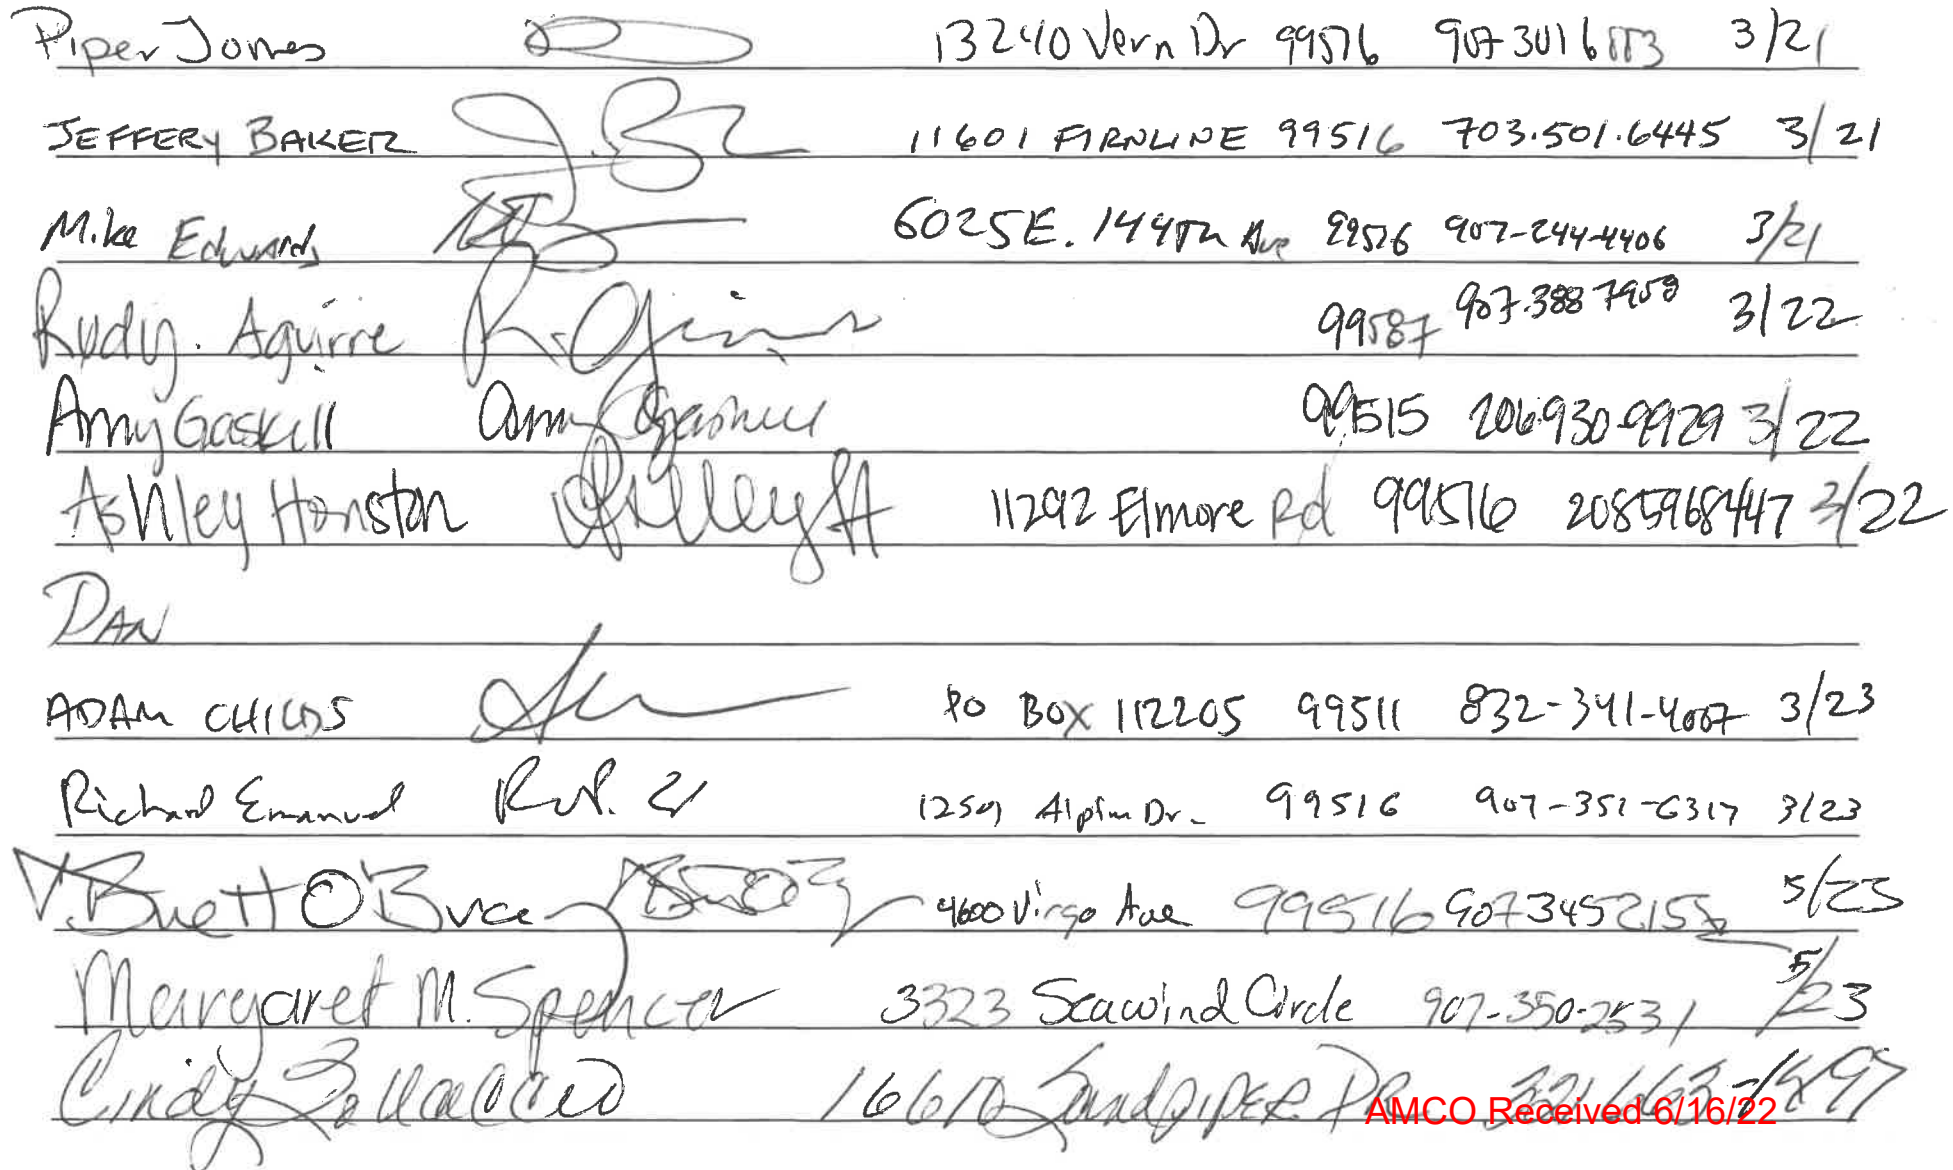 Piper Jones 13240 Vern Dr 99516 907 301 6113 3/21
JEFFERY BAKER J. B 11601 FIRNLINE 99516 703.501.6445 3/21
Mike Edwards 6025 E. 144TH Ave 99516 907-244-4406 3/21
Rudy. Aguirre 99587 907.388 7959 3/22
Amy Gaskill Amy Gaskill 99515 206.930-9929 3/22
Ashley Honston Ashley H 11292 Elmore Rd 99516 2085968447 3/22
DAN
ADAM CHILDS PO BOX 112205 99511 832-341-4007 3/23
Richard Emanuel 12501 Alpine Dr. 99516 907-351-6317 3/23
Brett O'Bryce 4600 Virgo Ave 99516 907 345 2155 5/23
Margaret M. Spencer 3323 Seawind Circle 907-350-2531 5/23
Cindy Sandpiper DR
AMCO Received 6/16/22